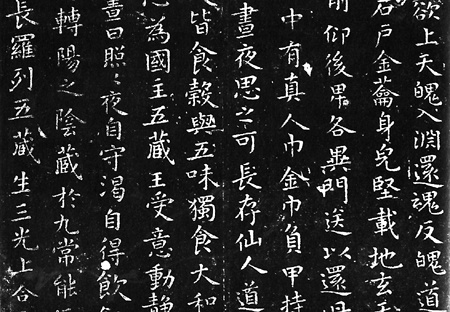 欲上天魄入淵還魂反魄道
石戶金籥身完堅載地玄天
前仰後卑各異門送以還丹
中有真人巾金巾負甲持
晝夜思之可長存仙人道
人皆食穀與五味獨食大和
為國王五藏王受意動靜
晝日照〻夜自守渴自得飲
轉陽之陰藏於九常能
長羅列五藏生三光上合